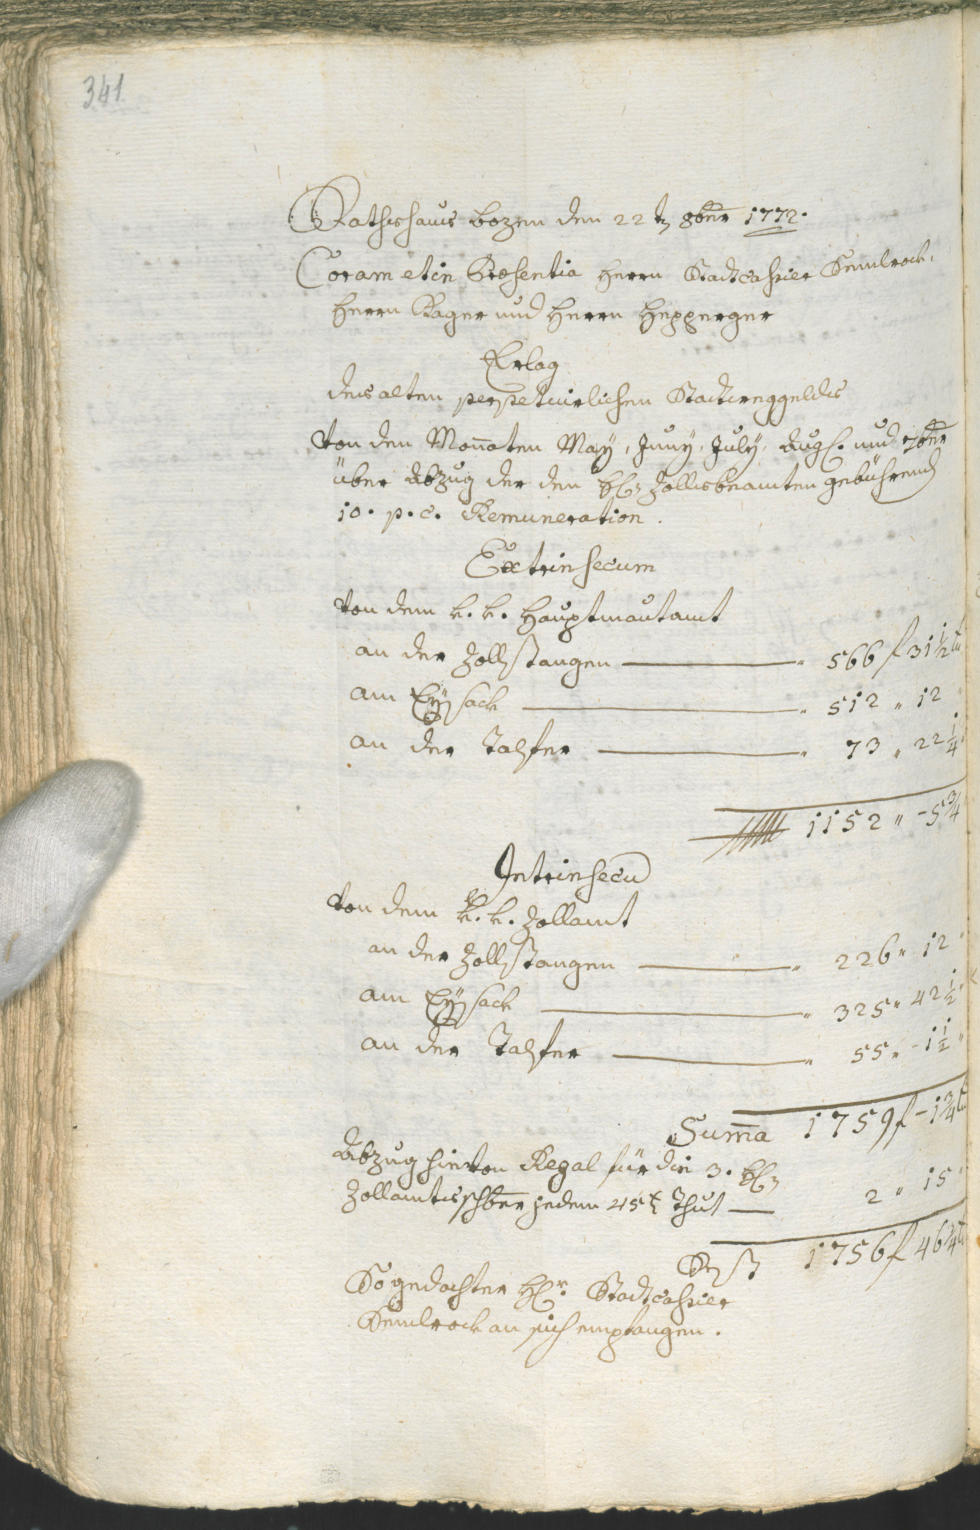 341
Rathshaus bozen den 22 tn 8ber 1772.
Coram et in Præsentia herrn Stadtcassier Semlrock,
herrn Rager und herrn Hepperger
Erlag
des alten perpetuirlichen Stadtweggeldes
von den Monnaten May, Juny, July, Aug. und 7ber
über Abzug der den Zollsbeamten gebührend
10. p. c. Remuneration.
Extrinsecum
von dem k. k. Hauptmautamt
an der Zollstangen — 566 f 31 1/2 x
am Eysack — 512 " 12
an der Talfer — 73 " 22 1/4
1152 " - 5 3/4
Intrinsecu
von dem k. k. Zollamt
an der Zollstangen — 226 " 12 "
am Eysack — 325 " 42 1/2 "
an der Talfer — 55 " - 1 1/2 "
Suma 1759 f - 1 3/4 x
Abzug hievon Regal für die 3.
Zollamts schber jedem 45 x thut — 2 " 15 "
Rest 1756 f 46 3/4 x
So gedachter H: Stadtcassier
Semlrock an sich empfangen.